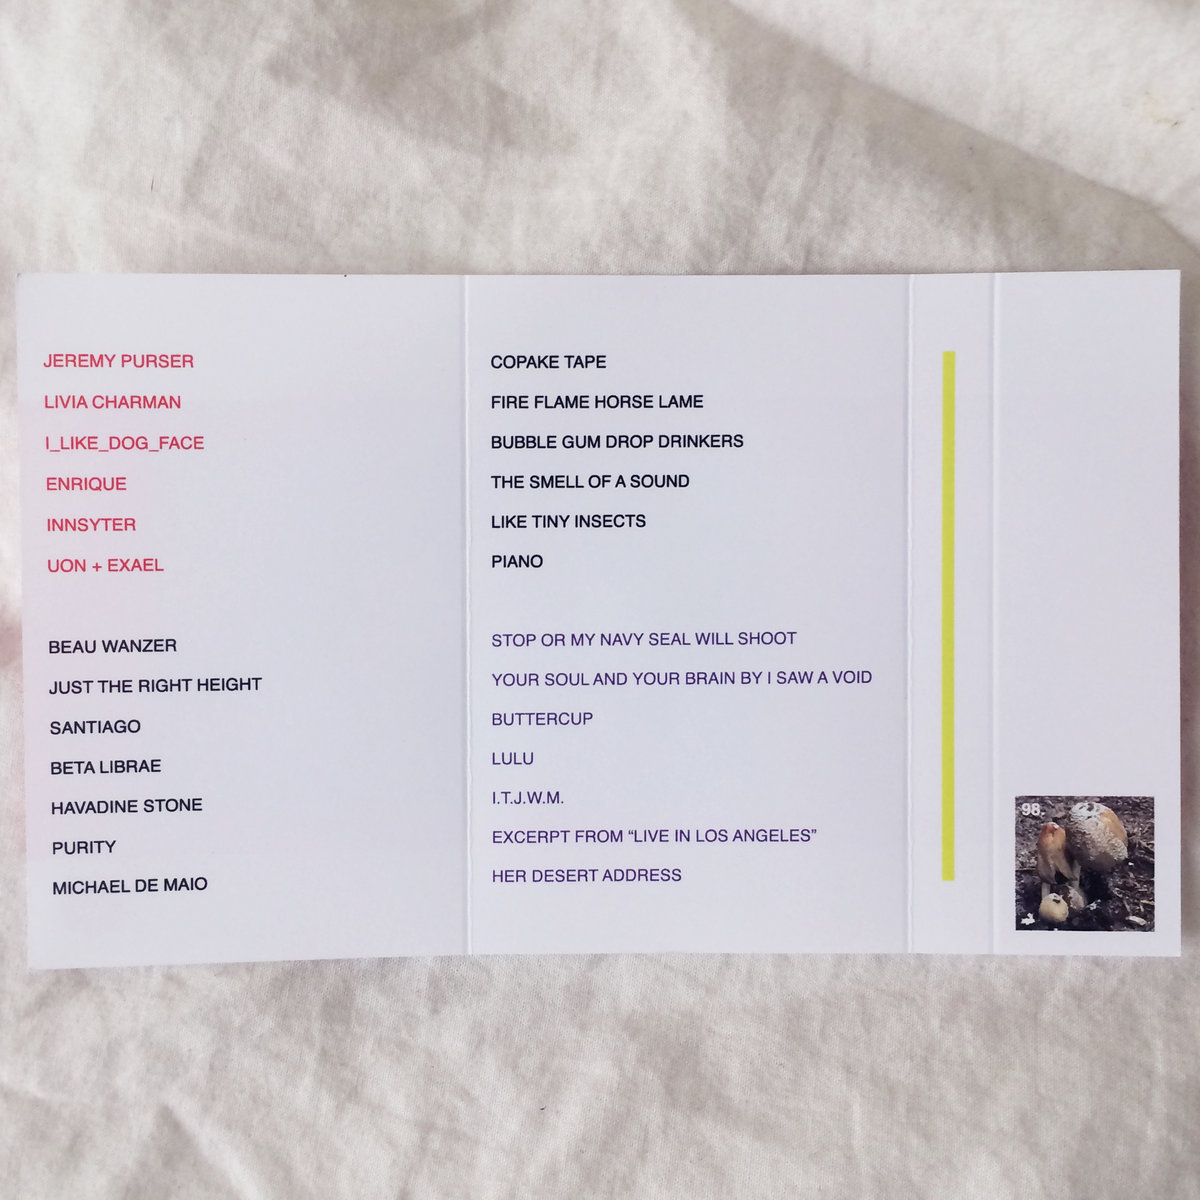 JEREMY PURSER
LIVIA CHARMAN
I_LIKE_DOG_FACE
ENRIQUE
INNSYTER
UON + EXAEL
BEAU WANZER
JUST THE RIGHT HEIGHT
SANTIAGO
BETA LIBRAE
HAVADINE STONE
PURITY
MICHAEL DE MAIO
COPAKE TAPE
FIRE FLAME HORSE LAME
BUBBLE GUM DROP DRINKERS
THE SMELL OF A SOUND
LIKE TINY INSECTS
PIANO
STOP OR MY NAVY SEAL WILL SHOOT
YOUR SOUL AND YOUR BRAIN BY I SAW A VOID
BUTTERCUP
LULU
I.T.J.W.M.
EXCERPT FROM “LIVE IN LOS ANGELES”
HER DESERT ADDRESS
98.